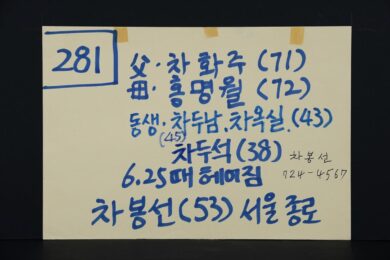 281
父·차화주(71)
母·홍명월(72)
동생·차두남.차옥실.(43)
(45)
차두석(38)
차봉선
724-4567
6.25때 헤어짐
차봉선(53) 서울 종로